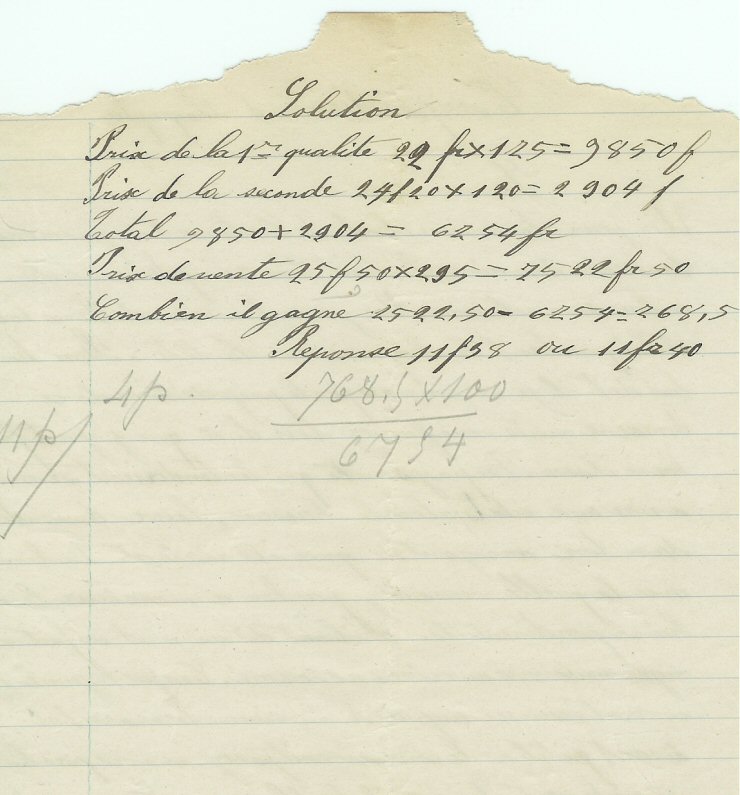 Solution
Prix de la 1re qualite 22 fr×175= 3850 f
Prix de la seconde 24f20×120= 2904 f
Total 3850+2904= 6754 fr
Prix de vente 25f50×295= 7522 fr 50
Combien il gagne 7522,50- 6754=768,5
Reponse 11f38 ou 11fr40
4p. 768,5×100
11p/ 6754